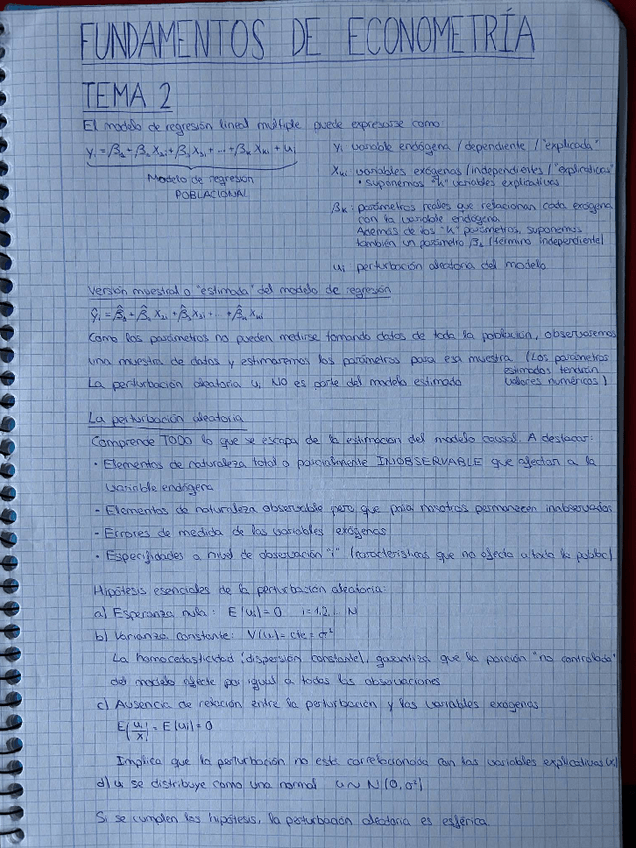 FUNDAMENTOS DE ECONOMETRÍA
TEMA 2
El modelo de regresión lineal múltiple puede expresarse como
yi = β1 + β2 X2i + β3 X3i + ... + βk Xki + ui
Modelo de regresión
POBLACIONAL
yi variable endógena / dependiente / "explicada"
Xki: variables exógenas / independientes / "explicativas"
• suponemos "k" variables explicativas
βk: parámetros reales que relacionan cada exógena
con la variable endógena.
Además de los "k" parámetros, suponemos
también un parámetro β1 (término independiente)
ui perturbación aleatoria del modelo
Versión muestral o "estimada" del modelo de regresión
ŷi = β̂1 + β̂2 X2i + β̂3 X3i + ... + β̂k Xki
Como los parámetros no pueden medirse tomando datos de toda la población, observaremos
una muestra de datos y estimaremos los parámetros para esa muestra (Los parámetros
estimados tendrán
valores numéricos)
La perturbación aleatoria ui NO es parte del modelo estimado
La perturbación aleatoria
Comprende TODO lo que se escapa de la estimación del modelo causal. A destacar:
• Elementos de naturaleza total o parcialmente INOBSERVABLE que afectan a la
variable endógena
• Elementos de naturaleza observable pero que para nosotros permanecen inobservados
• Errores de medida de las variables exógenas
• Especifidades a nivel de observación "i" (características que no afecta a toda la poblac)
Hipótesis esenciales de la perturbación aleatoria:
a) Esperanza nula: E(ui) = 0 i = 1,2... N
b) Varianza constante: V(ui) = cte = σ²
La homocedasticidad (dispersión constante), garantiza que la porción "no controlada"
del modelo afecte por igual a todas las observaciones
c) Ausencia de relación entre la perturbación y las variables exógenas
E(ui/Xi) = E(ui) = 0
Implica que la perturbación no está correlacionada con las variables explicativas (x)
d) u se distribuye como una normal u ~ N(0, σ²)
Si se cumplen las hipótesis, la perturbación aleatoria es esférica.